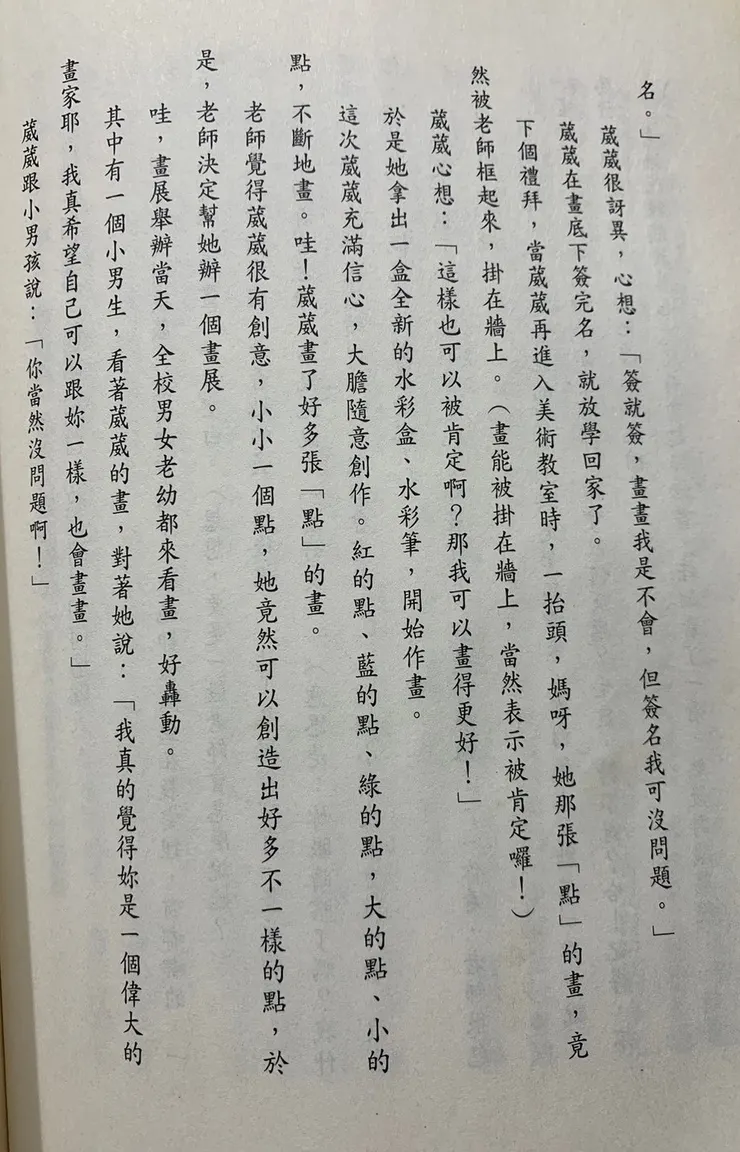 名。」
葳葳很訝異，心想：「簽就簽，畫畫我是不會，但簽名我可沒問題。」
葳葳在畫底下簽完名，就放學回家了。
下個禮拜，當葳葳再進入美術教室時，一抬頭，媽呀，她那張「點」的畫，竟
然被老師框起來，掛在牆上。（畫能被掛在牆上，當然表示被肯定囉！）
葳葳心想：「這樣也可以被肯定啊？那我可以畫得更好！」
於是她拿出一盒全新的水彩盒、水彩筆，開始作畫。
這次葳葳充滿信心，大膽隨意創作。紅的點、藍的點、綠的點，大的點、小的
點，不斷地畫。哇！葳葳畫了好多張「點」的畫。
老師覺得葳葳很有創意，小小一個點，她竟然可以創造出好多不一樣的點，於
是，老師決定幫她辦一個畫展。
哇，畫展舉辦當天，全校男女老幼都來看畫，好轟動。
其中有一個小男生，看著葳葳的畫，對著她說：「我真的覺得妳是一個偉大的
畫家耶，我真希望自己可以跟妳一樣，也會畫畫。」
葳葳跟小男孩說：「你當然沒問題啊！」